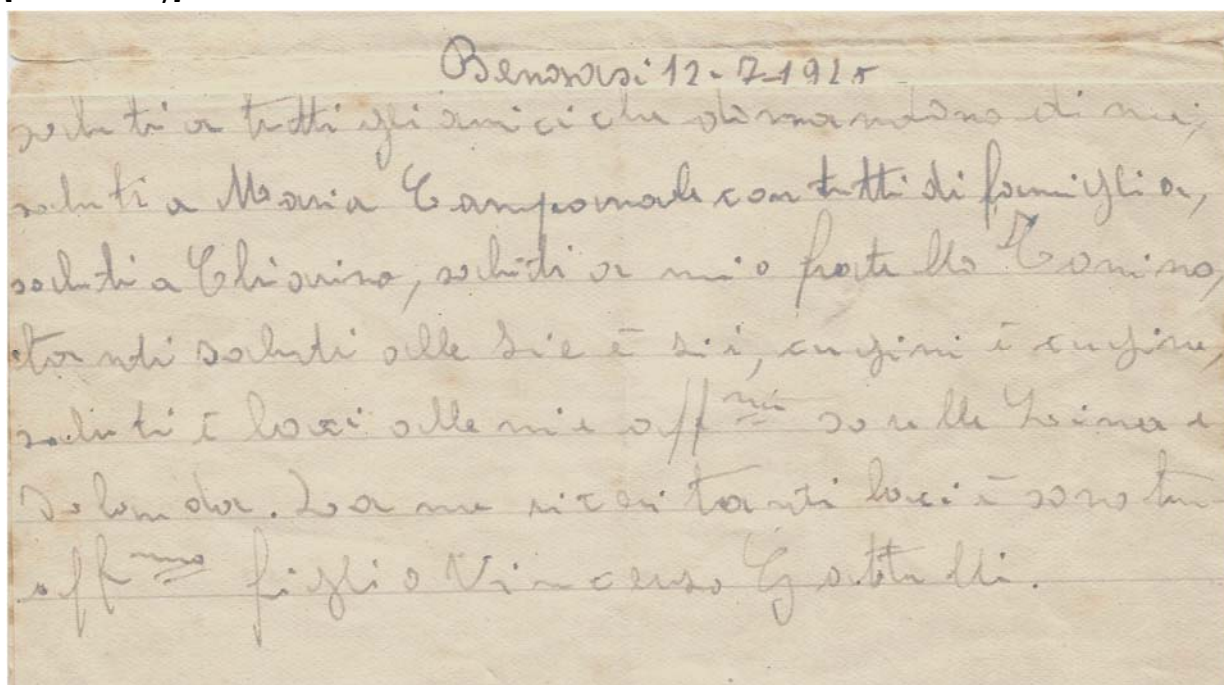 Bengasi 12-7-1925
saluti a tutti gli amici che domandano di me,
saluti a Maria Campomale con tutti di famiglia,
saluti a Chiarino, saluti a mio fratello Tonino,
tanti saluti alle zie è zii, cugini è cugine,
saluti è baci alle mie aff me sorelle Lina e
Jolanda. Da me ricevi tanti baci è sono tuo
aff mo figlio Vincenzo Gattelli.